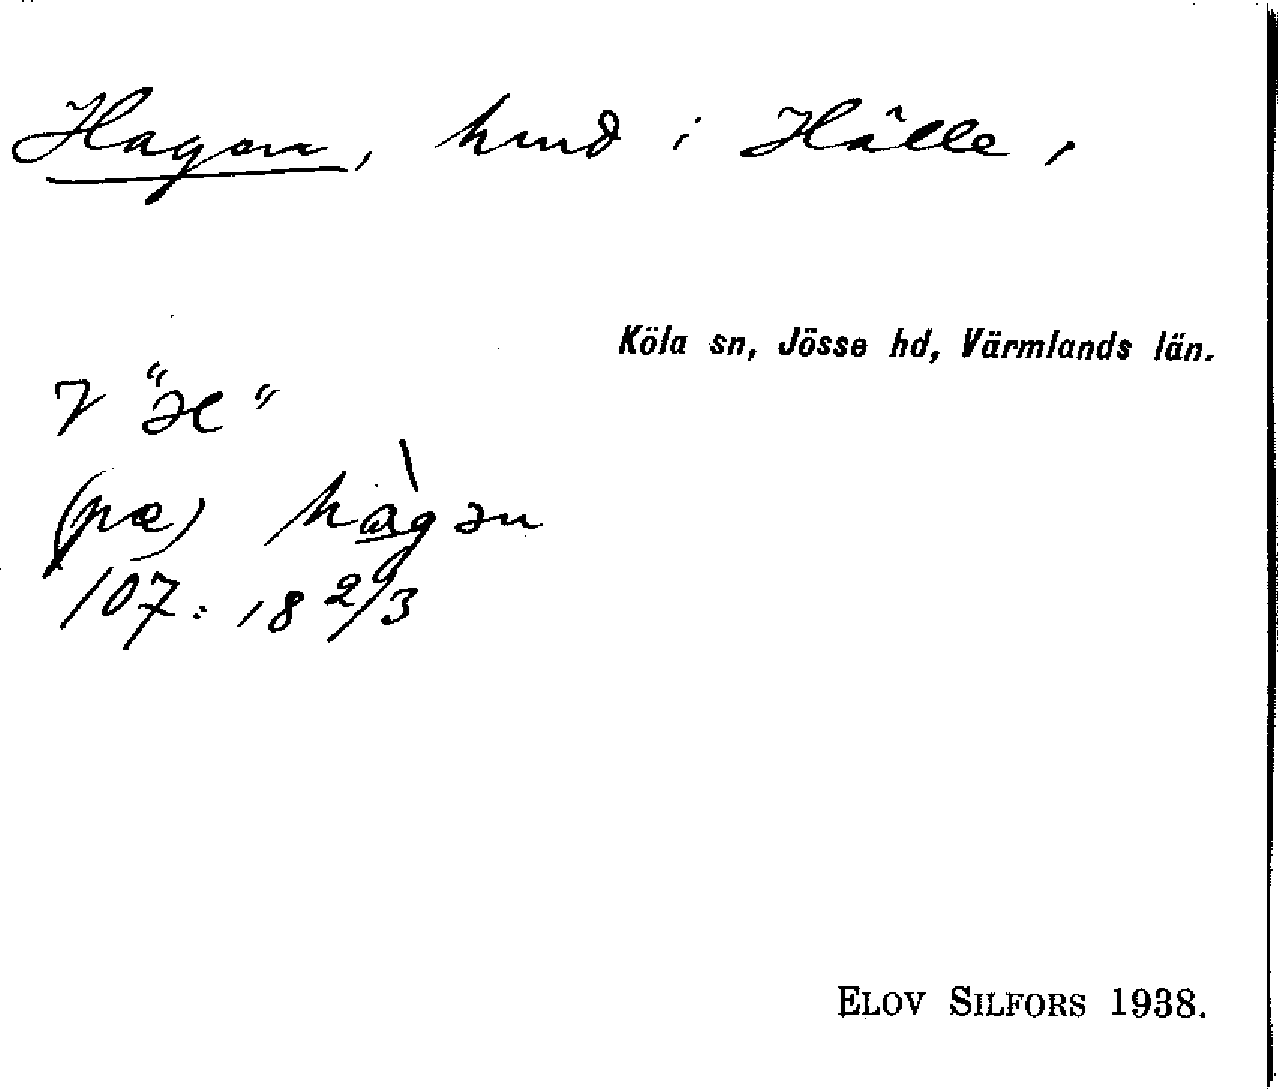 Hagen, hmd i Hälle,
Köla sn, Jösse hd, Värmlands län.
V "æ"
(pæ) hàgən
107: 18 2/3
ELOV SILFORS 1938.